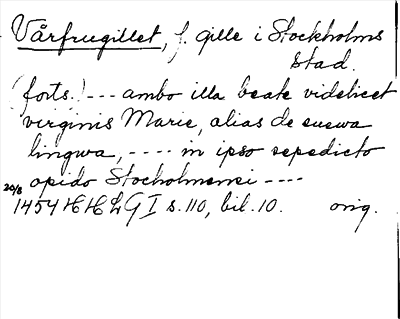 Vårfrugillet, f. gille i Stockholms
stad.
(forts.) --- ambo illa beate videlicet
virginis Marie, alias de suewa
lingwa, ---- in ipso sepedicto
opido Stocholmensi ----
20/8 1454 HHLG I s. 110, bil. 10. orig.